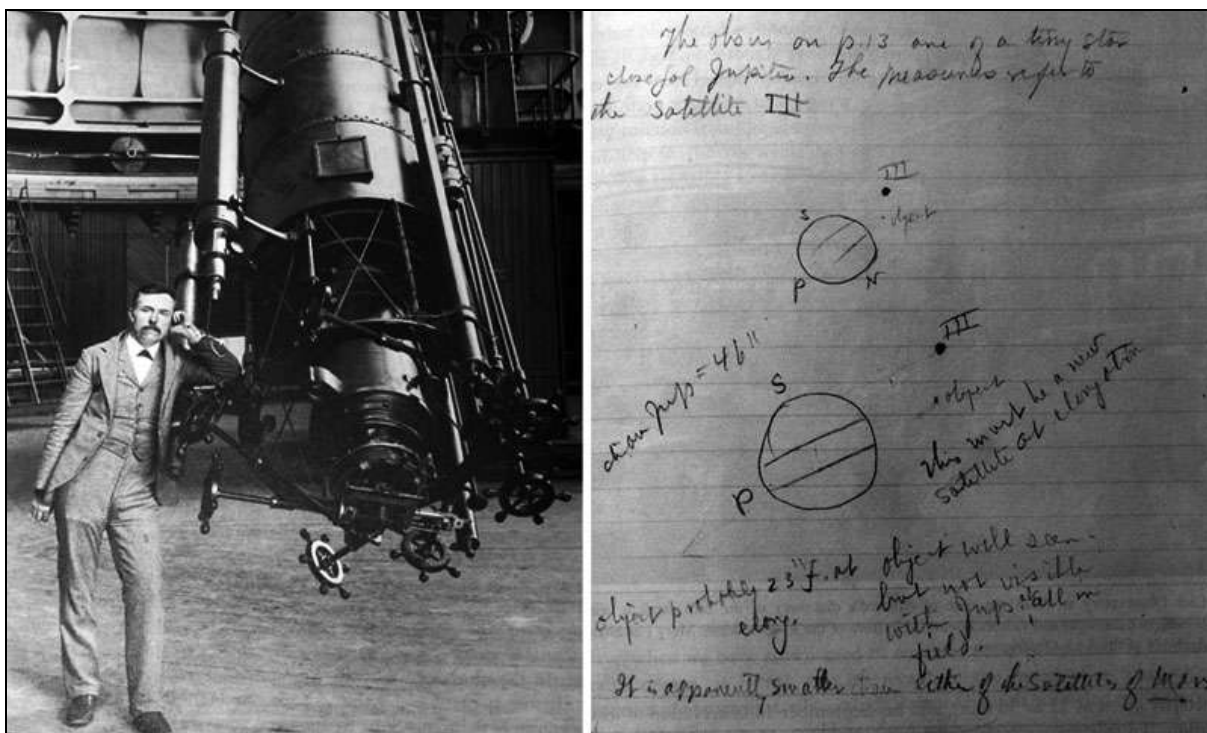 The obsns on p.13 are of a tiny star
close fol Jupiter. The measures refer to
the satellite III
III
object
S
P
N
diam Jup = 46"
III
S
object
P
This must be a new
satellite at elongation
object probably 23" f. at
elong.
object well seen.
but not visible
with Jup. at all in
field.
It is apparently smaller than either of the satellites of Mars